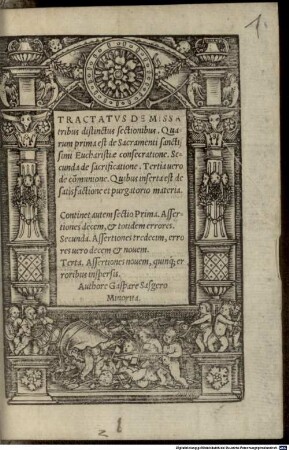 1.
TRACTATVS DE MISSA
tribus distinctus sectionibus. Qua
rum prima est de Sacramenti sanctis
simi Eucharistiæ consecratione. Se
cunda de sacrificatione. Tertia uero
de cõmunione. Quibus inserta est de
satisfactione et purgatorio materia.
Continet autem sectio Prima. Asser
tiones decem, & totidem errores.
Secunda. Assertiones tredecim, erro
res uero decem & nouem.
Tertia. Assertiones nouem, quinq; er
roribus inspersis.
Authore Gaspare Sasgero
Minorita.